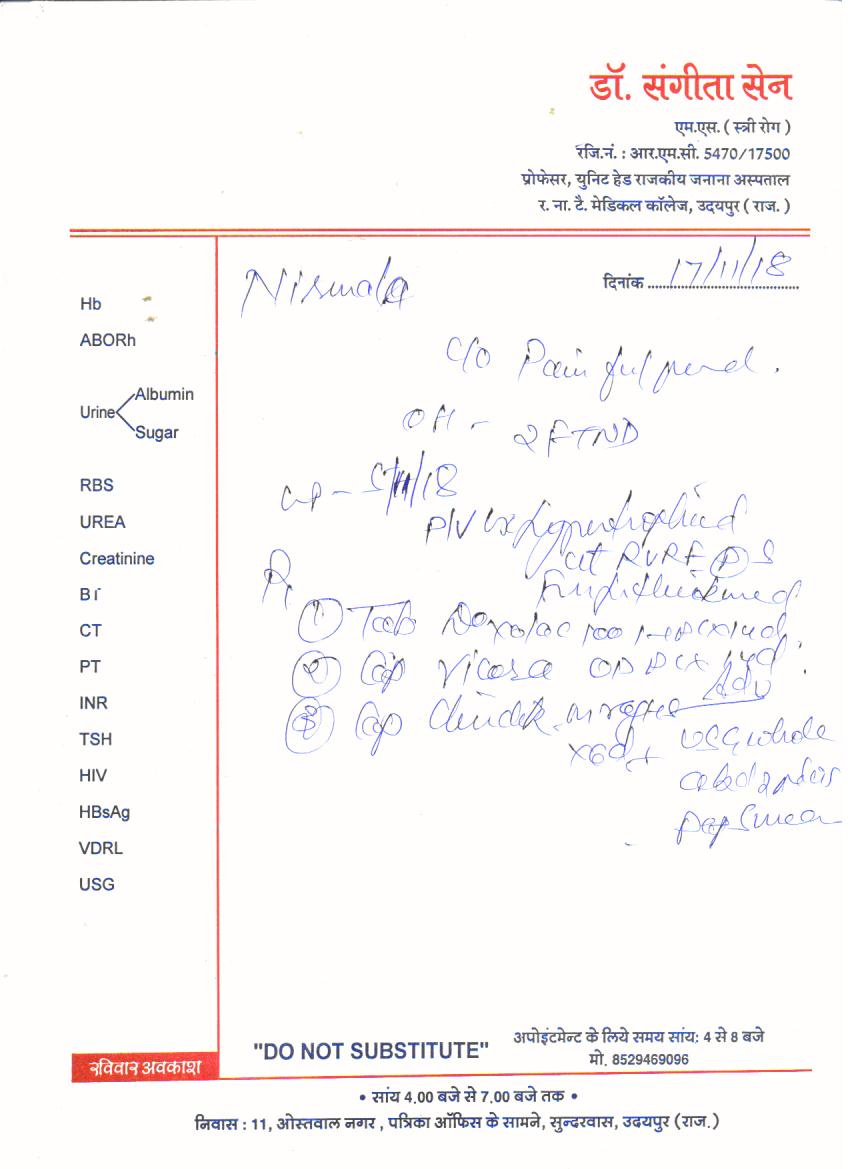 डॉ. संगीता सेन
एम.एस. ( स्त्री रोग )
रजि.नं. : आर.एम.सी. 5470/17500
प्रोफेसर, युनिट हेड राजकीय जनाना अस्पताल
र. ना. टै. मेडिकल कॉलेज, उदयपुर ( राज. )
Nirmala
दिनांक 17/11/18
Hb
ABORh
Urine
Albumin
Sugar
RBS
UREA
Creatinine
CT
PT
INR
TSH
HIV
HBsAg
VDRL
USG
C/o Painful
OH - 2FTND
P/V Cx hypertrophied
RVRF
thickened
Rx
① Tab 100
② Cap OD
③ Cap
Adv
USG whole
Pap Smear
"DO NOT SUBSTITUTE"
अपोइंटमेन्ट के लिये समय सांय: 4 से 8 बजे
मो. 8529469096
रविवार अवकाश
• सांय 4.00 बजे से 7.00 बजे तक •
निवास : 11, ओस्तवाल नगर , पत्रिका ऑफिस के सामने, सुन्दरवास, उदयपुर (राज.)